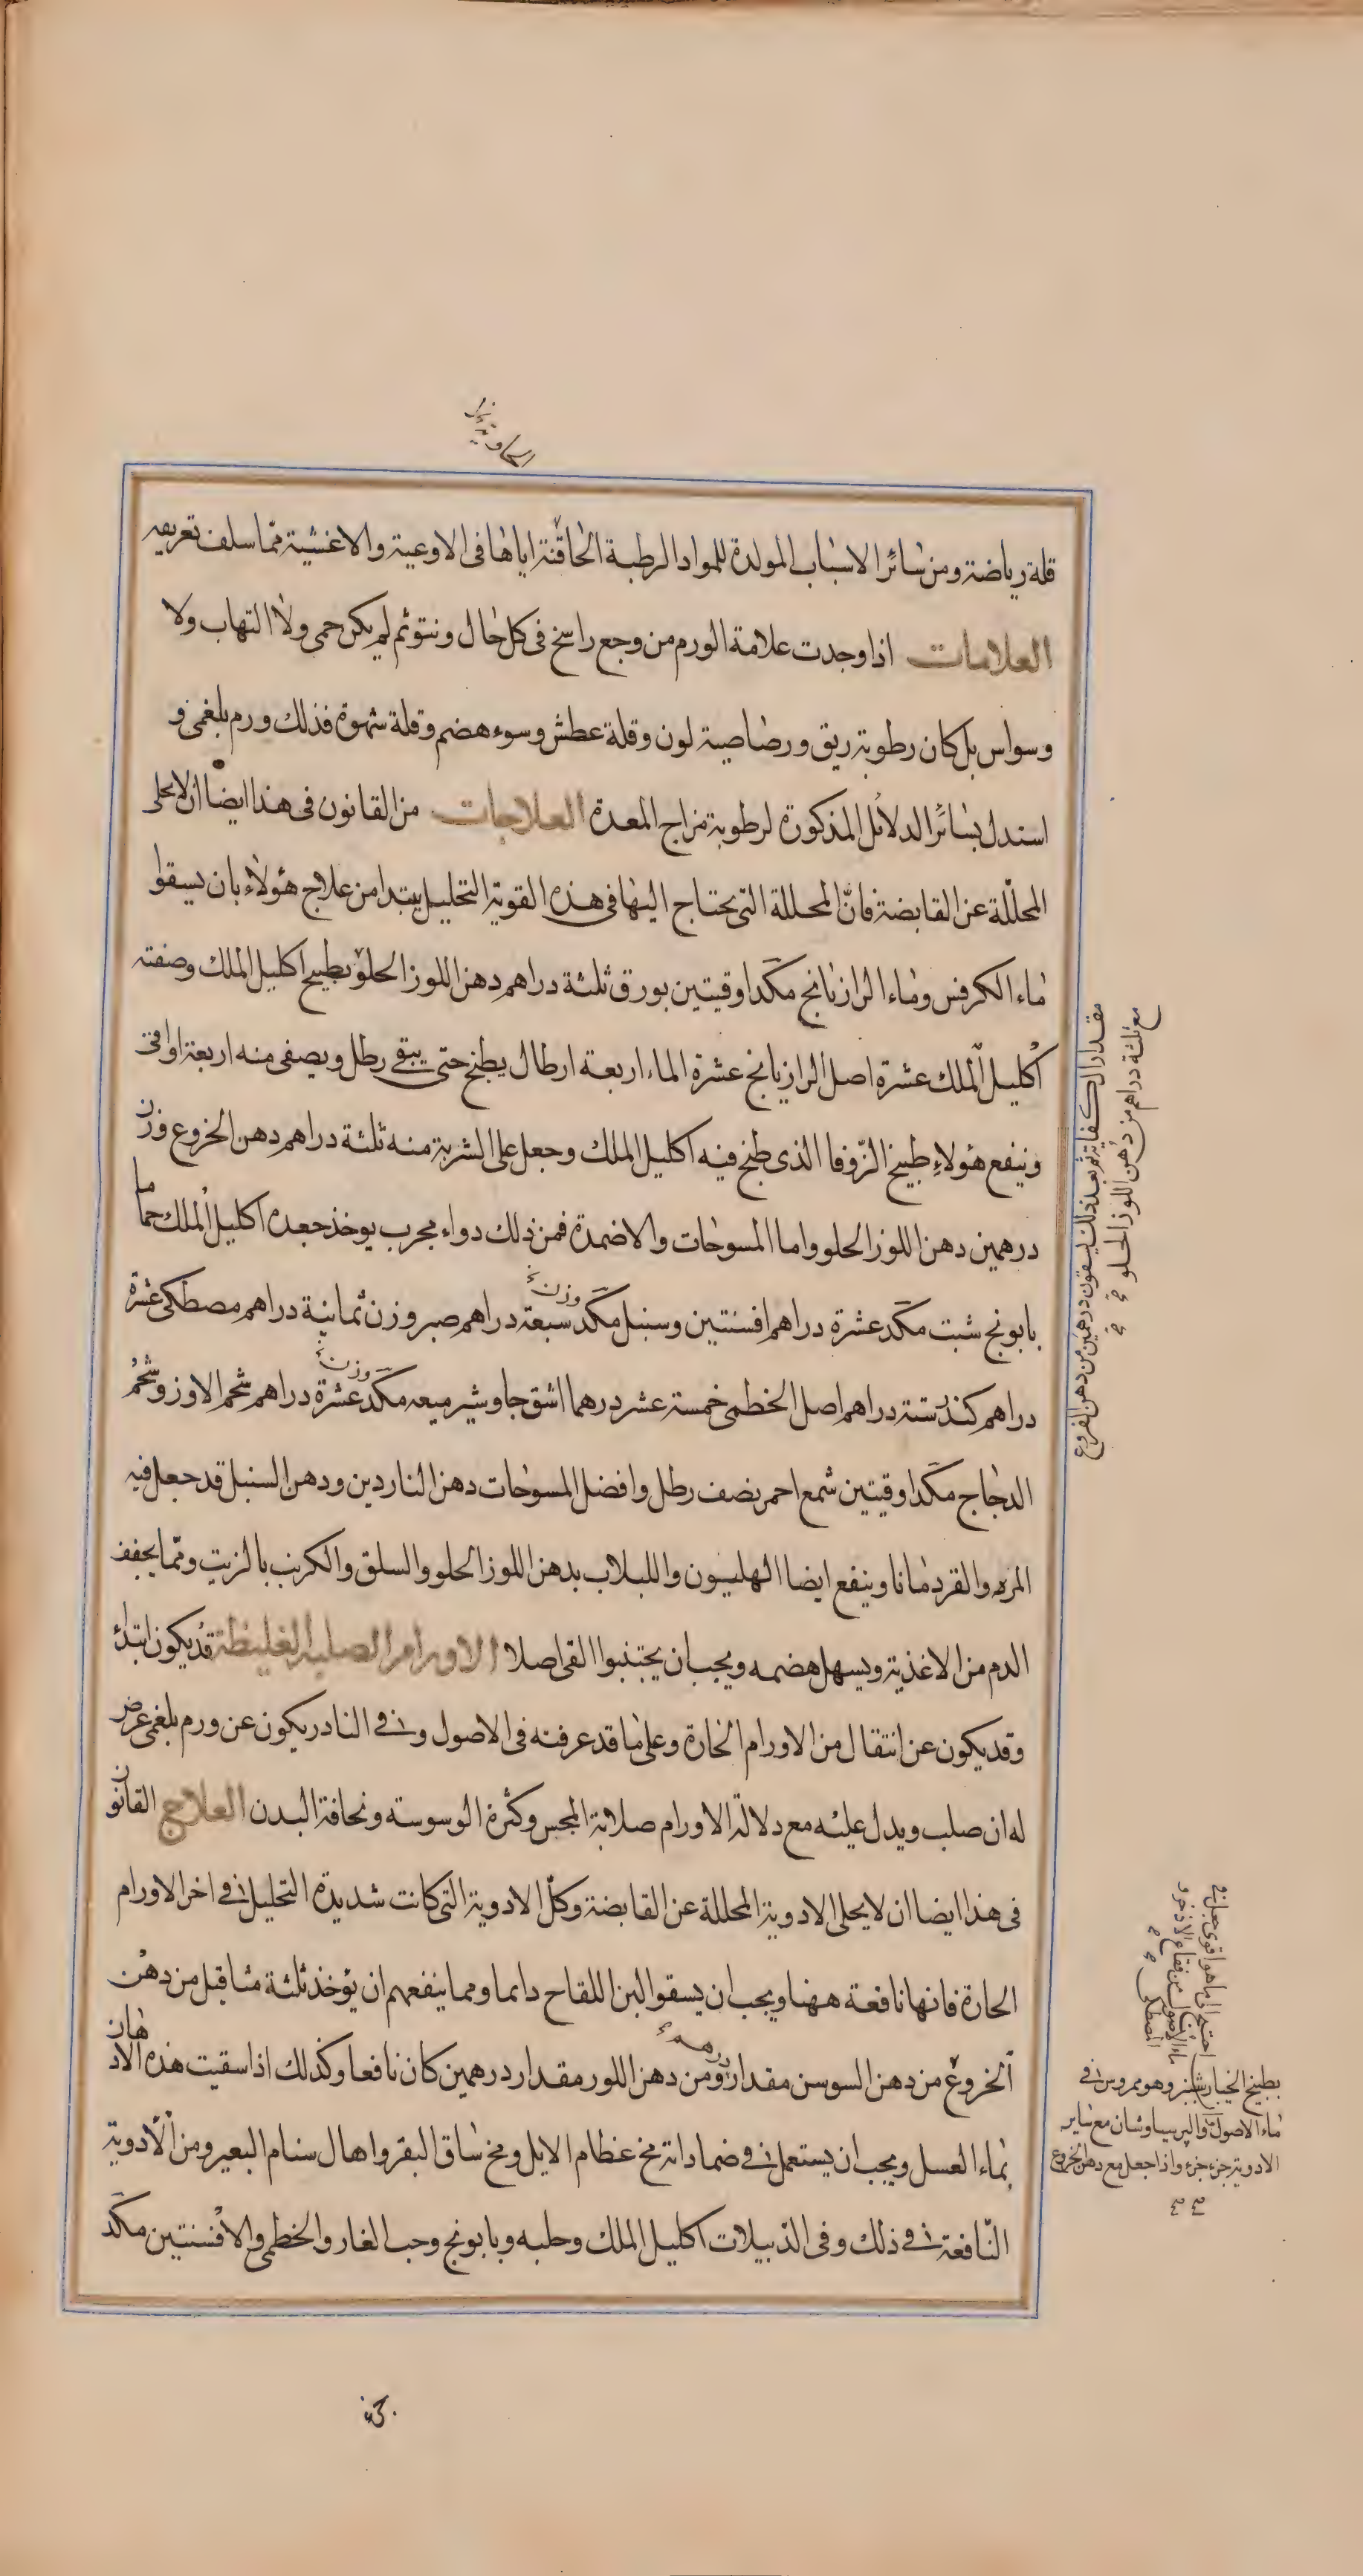 قلة رياضة ومن سائر الاسباب المولدة للمواد الرطبة الحاقنة اياها فى الاوعية والاغشية مما سلف تعريفه
العلامات اذا وجدت علامة الورم من وجع راسخ فى كل حال ونتوثم لم يكن حمى ولا التهاب ولا
وسواس بل كان رطوبة ريق ورصاصية لون وقلة عطش وسوء هضم وقلة شهوة فذلك ورم بلغمى و
استدل بسائر الدلائل المذكورة لرطوبة مزاج المعدة العلاجات من القانون فى هذا ايضا ان لا يخلى
المحللة عن القابضة فان المحللة التى يحتاج اليها فى هذه القوية التحليل يبتدا من علاج هؤلاء بان يسقوا
ماء الكرفس وماء الرازيانج مكد اوقيتين بورق ثلثة دراهم دهن اللوز الحلو بطبيخ اكليل الملك وصفته
اكليل الملك عشرة اصل الرازيانج عشرة الماء اربعة ارطال يطبخ حتى يبقى رطل ويصفى منه اربعة اواقى
وينفع هؤلاء طبيخ الزوفا الذى طبخ فيه اكليل الملك وجعل على الشربة منه ثلثة دراهم دهن الخروع وزن
درهمين دهن اللوز الحلو واما المسوحات والاضمدة فمن ذلك دواء مجرب يوخذ جعده اكليل الملك حماما
بابونج شبت مكد عشرة دراهم افسنتين وسنبل مكد وزن سبعة دراهم صبر وزن ثمانية دراهم مصطكى عشرة
دراهم كندر ستة دراهم اصل الخطمى خمسة عشر درهما اشق جاوشير ميعه مكد وزن عشرة دراهم شحم الاوز وشحم
الدجاج مكد اوقيتين شمع احمر نصف رطل وافضل المسوحات دهن الناردين ودهن السنبل قد جعل فيه
المره والقردمانا وينفع ايضا الهليون واللبلاب بدهن اللوز الحلو والسلق والكرنب بالزيت ومما يجفف
الدم من الاغذية ويسهل هضمه ويجب ان يجتنبوا القى اصلا الاورام الصلبة الغليظة قد يكون ابتداء
وقد يكون عن انتقال من الاورام الحارة وعلى ما قد عرفته فى الاصول وفى النادر يكون عن ورم بلغمى عرض
له ان صلب ويدل عليه مع دلالة الاورام صلابة المجس وكثرة الوسوسه ونحافة البدن العلاج القانون
فى هذا ايضا ان لا يخلى الادوية المحللة عن القابضة وكل الادوية التى كانت شديدة التحليل فى اخر الاورام
الحارة فانها نافعة ههنا ويجب ان يسقوا لبن اللقاح دايما ومما ينفعهم ان يؤخذ ثلثة مثاقيل من دهن
الخروع من دهن السوسن مقدار درهم ومن دهن اللوز مقدار درهمين كان نافعا وكذلك اذا سقيت هذه الادهان
بماء العسل ويجب ان يستعمل فى ضماداته مخ عظام الايل ومخ ساق البقر واهال سنام البعير ومن الادوية
النافعة فى ذلك وفى الدبيلات اكليل الملك وحلبه وبابونج وحب الغار والخطمى والافسنتين مكد
مقدار الكفاية ثم بعد ذلك يسقون درهمين من دهن الخروع
مع ثلثة دراهم من دهن اللوز الحلو
احتيج الى ما هو اقوى جعل فى
ماء الاصول من فقاح الاذخر و
المصطكى
بطبيخ الخيارشنبر وهو ممروس فى
ماء الاصول والبرسياوشان مع ساير
الادوية جزء جزء واذا جعل مع دهن الخروع